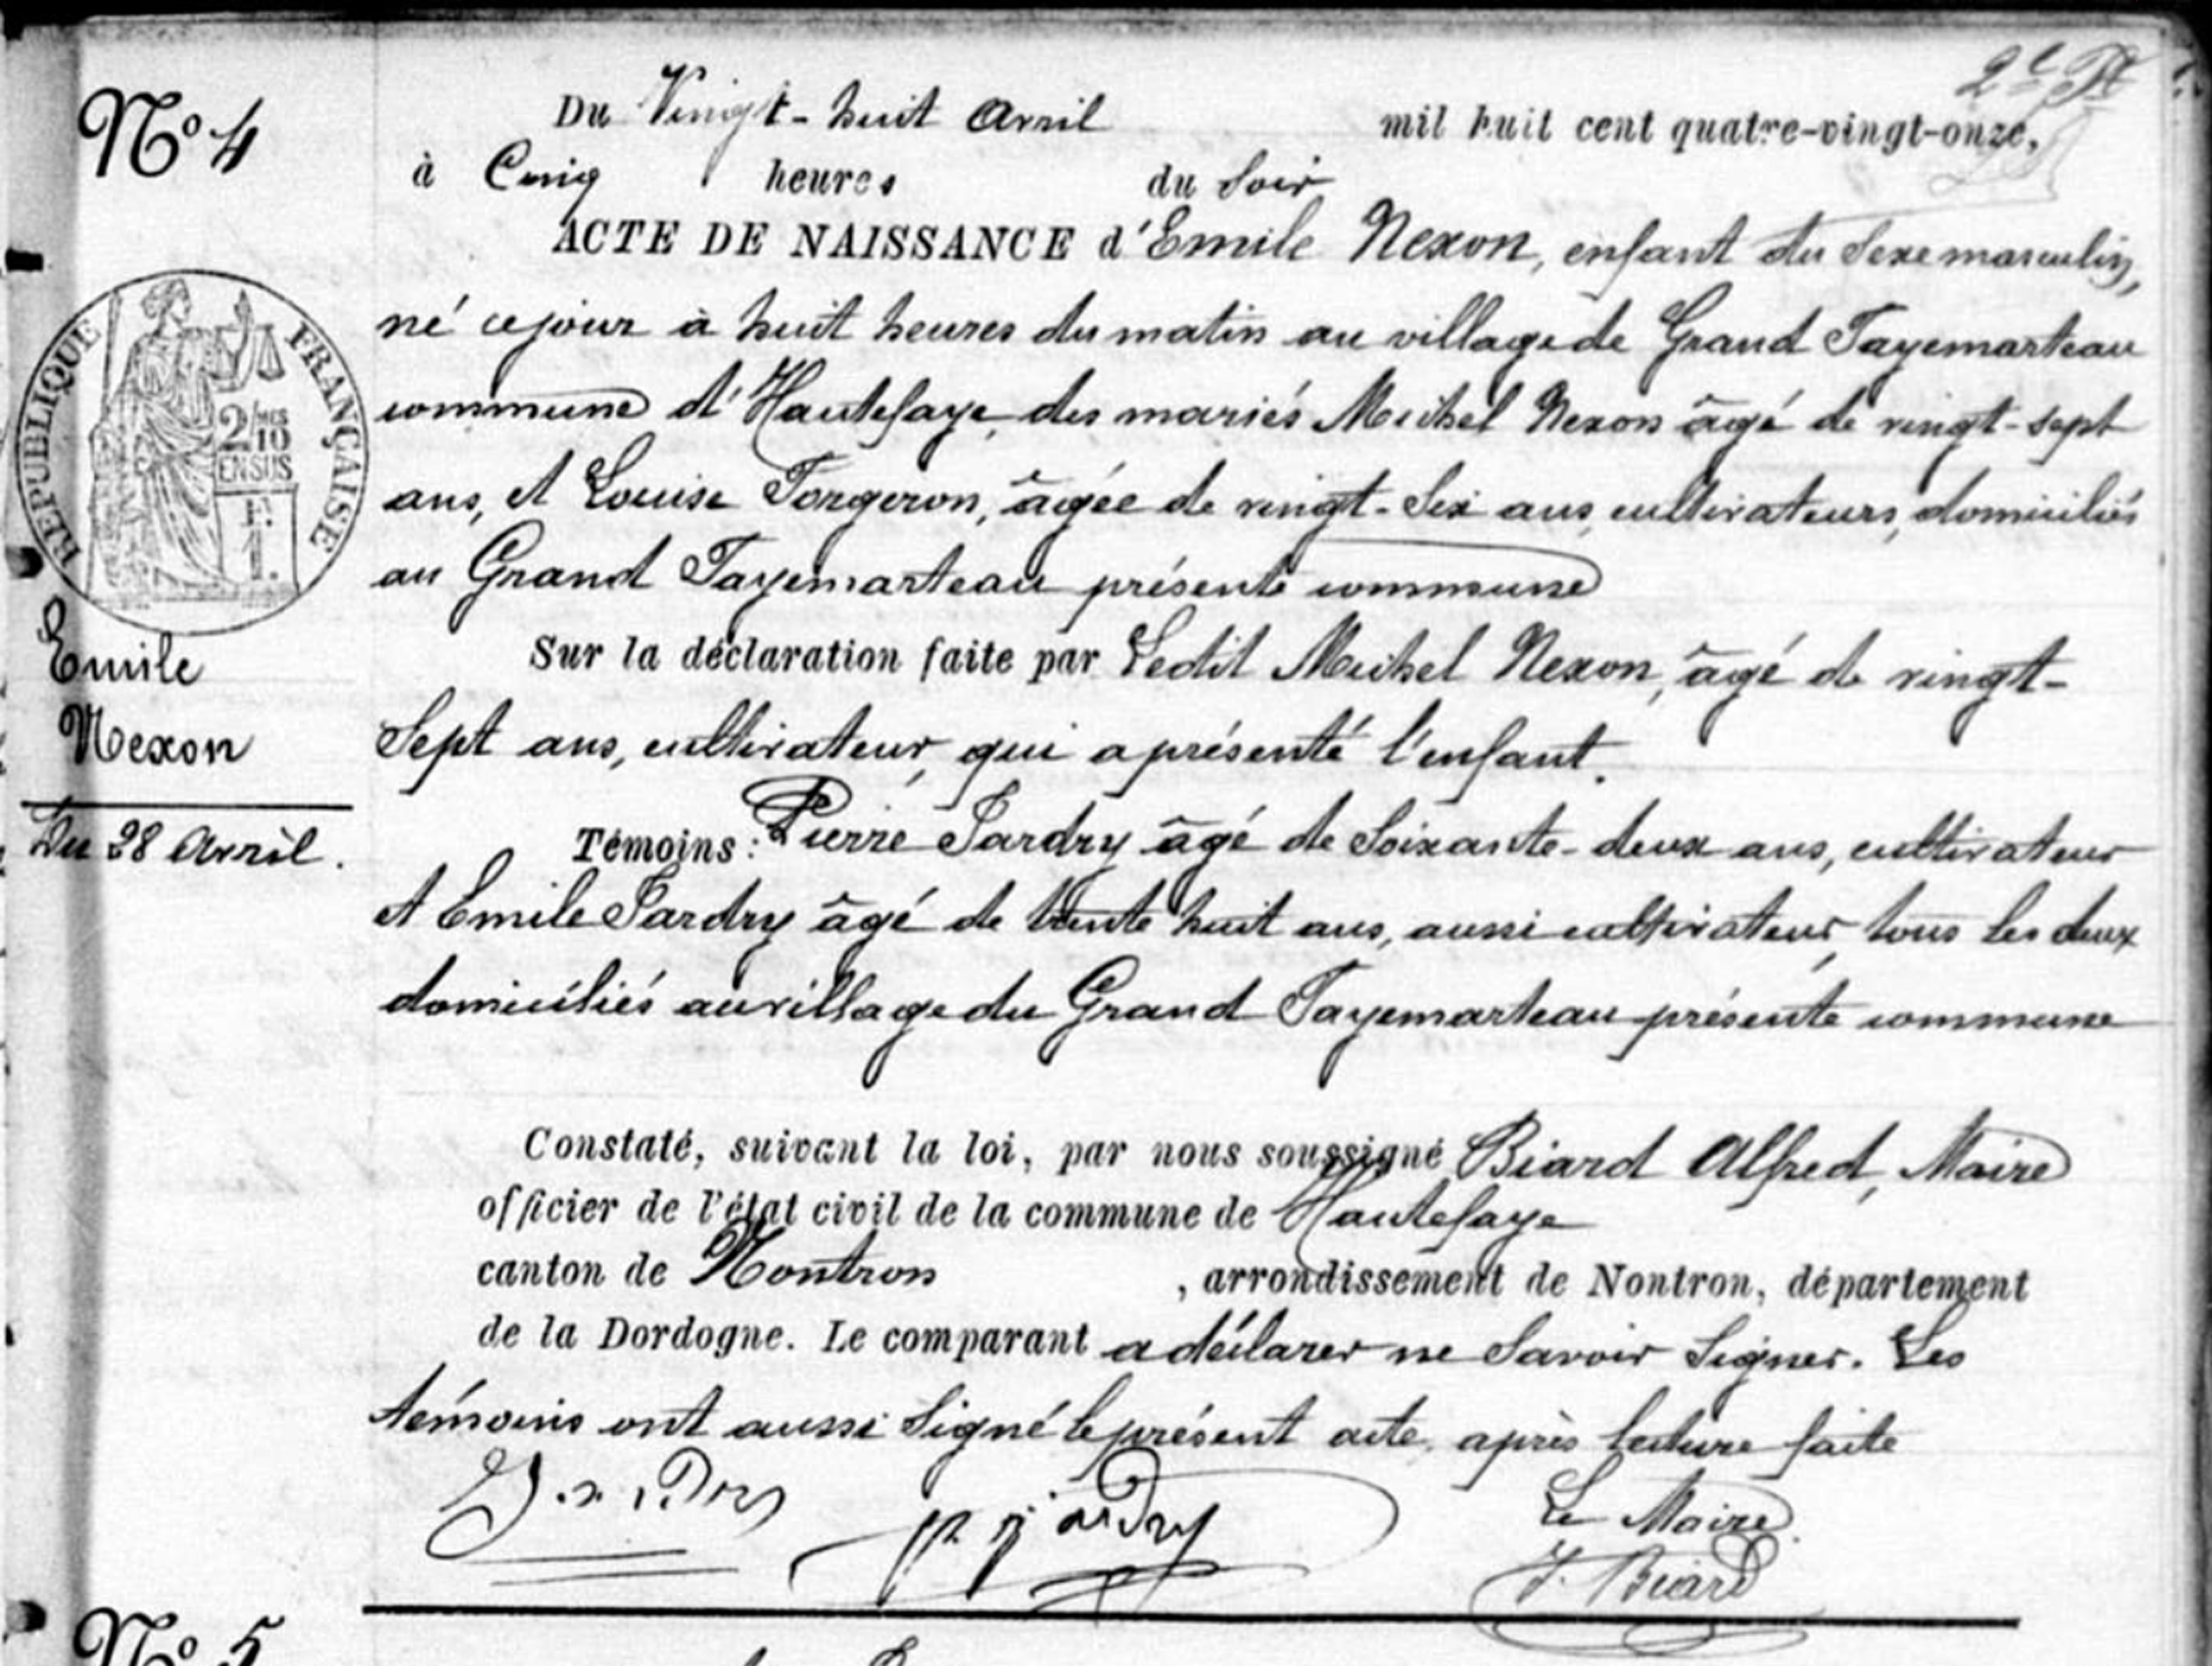 2e Rt
N° 4
Du Vingt-huit Avril mil huit cent quatre-vingt-onze,
à Cinq heures du Soir
ACTE DE NAISSANCE d'Emile Nexon, enfant du Sexe masculin,
né ce jour à huit heures du matin au village de Grand Fayemarteau
commune d'Hautefaye, des mariés Michel Nexon âgé de vingt-sept
ans, et Louise Forgeron, âgée de vingt-Six ans, cultivateurs, domiciliés
au Grand Fayemarteau présente commune
REPUBLIQUE FRANÇAISE
2/10
EN SUS
F.
1.
Emile
Nexon
Du 28 Avril.
Sur la déclaration faite par Ledit Michel Nexon, âgé de vingt-
Sept ans, cultivateur, qui a présenté l'enfant.
Témoins: Pierre Jardry âgé de Soixante-deux ans, cultivateur
et Emile Jardry âgé de trente huit ans, aussi cultivateur, tous les deux
domiciliés au village du Grand Fayemarteau présente commune
Constaté, suivant la loi, par nous soussigné Biard Alfred, Maire
officier de l'état civil de la commune de Hautefaye
canton de Nontron, arrondissement de Nontron, département
de la Dordogne. Le comparant a déclarer ne Savoir Signer. Les
témoins ont aussi Signé le présent acte, après lecture faite
p jardry
Le Maire
Biard
N° 5